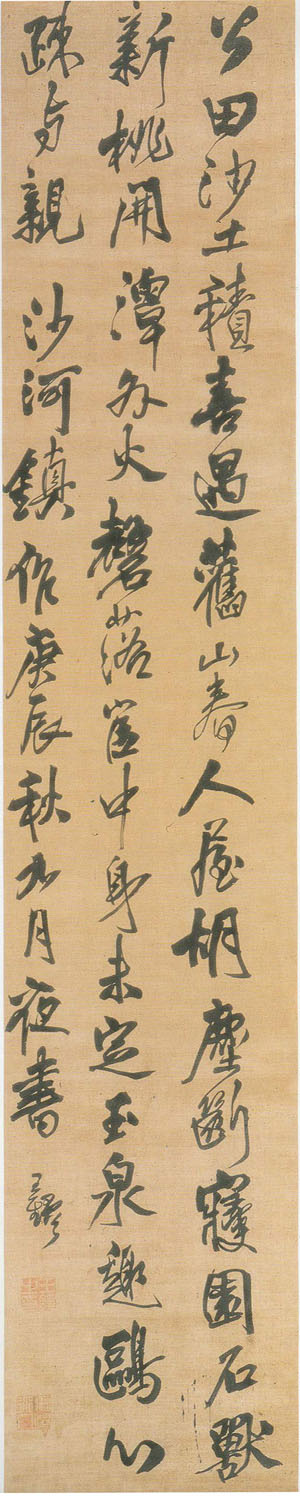 公田沙土積喜遇舊山春人胡塵斷寢園石獸
新桃開潭外火磬落中身未定玉泉趣鷗心
疎与親沙河鎮作庚辰秋九月夜書王鐸